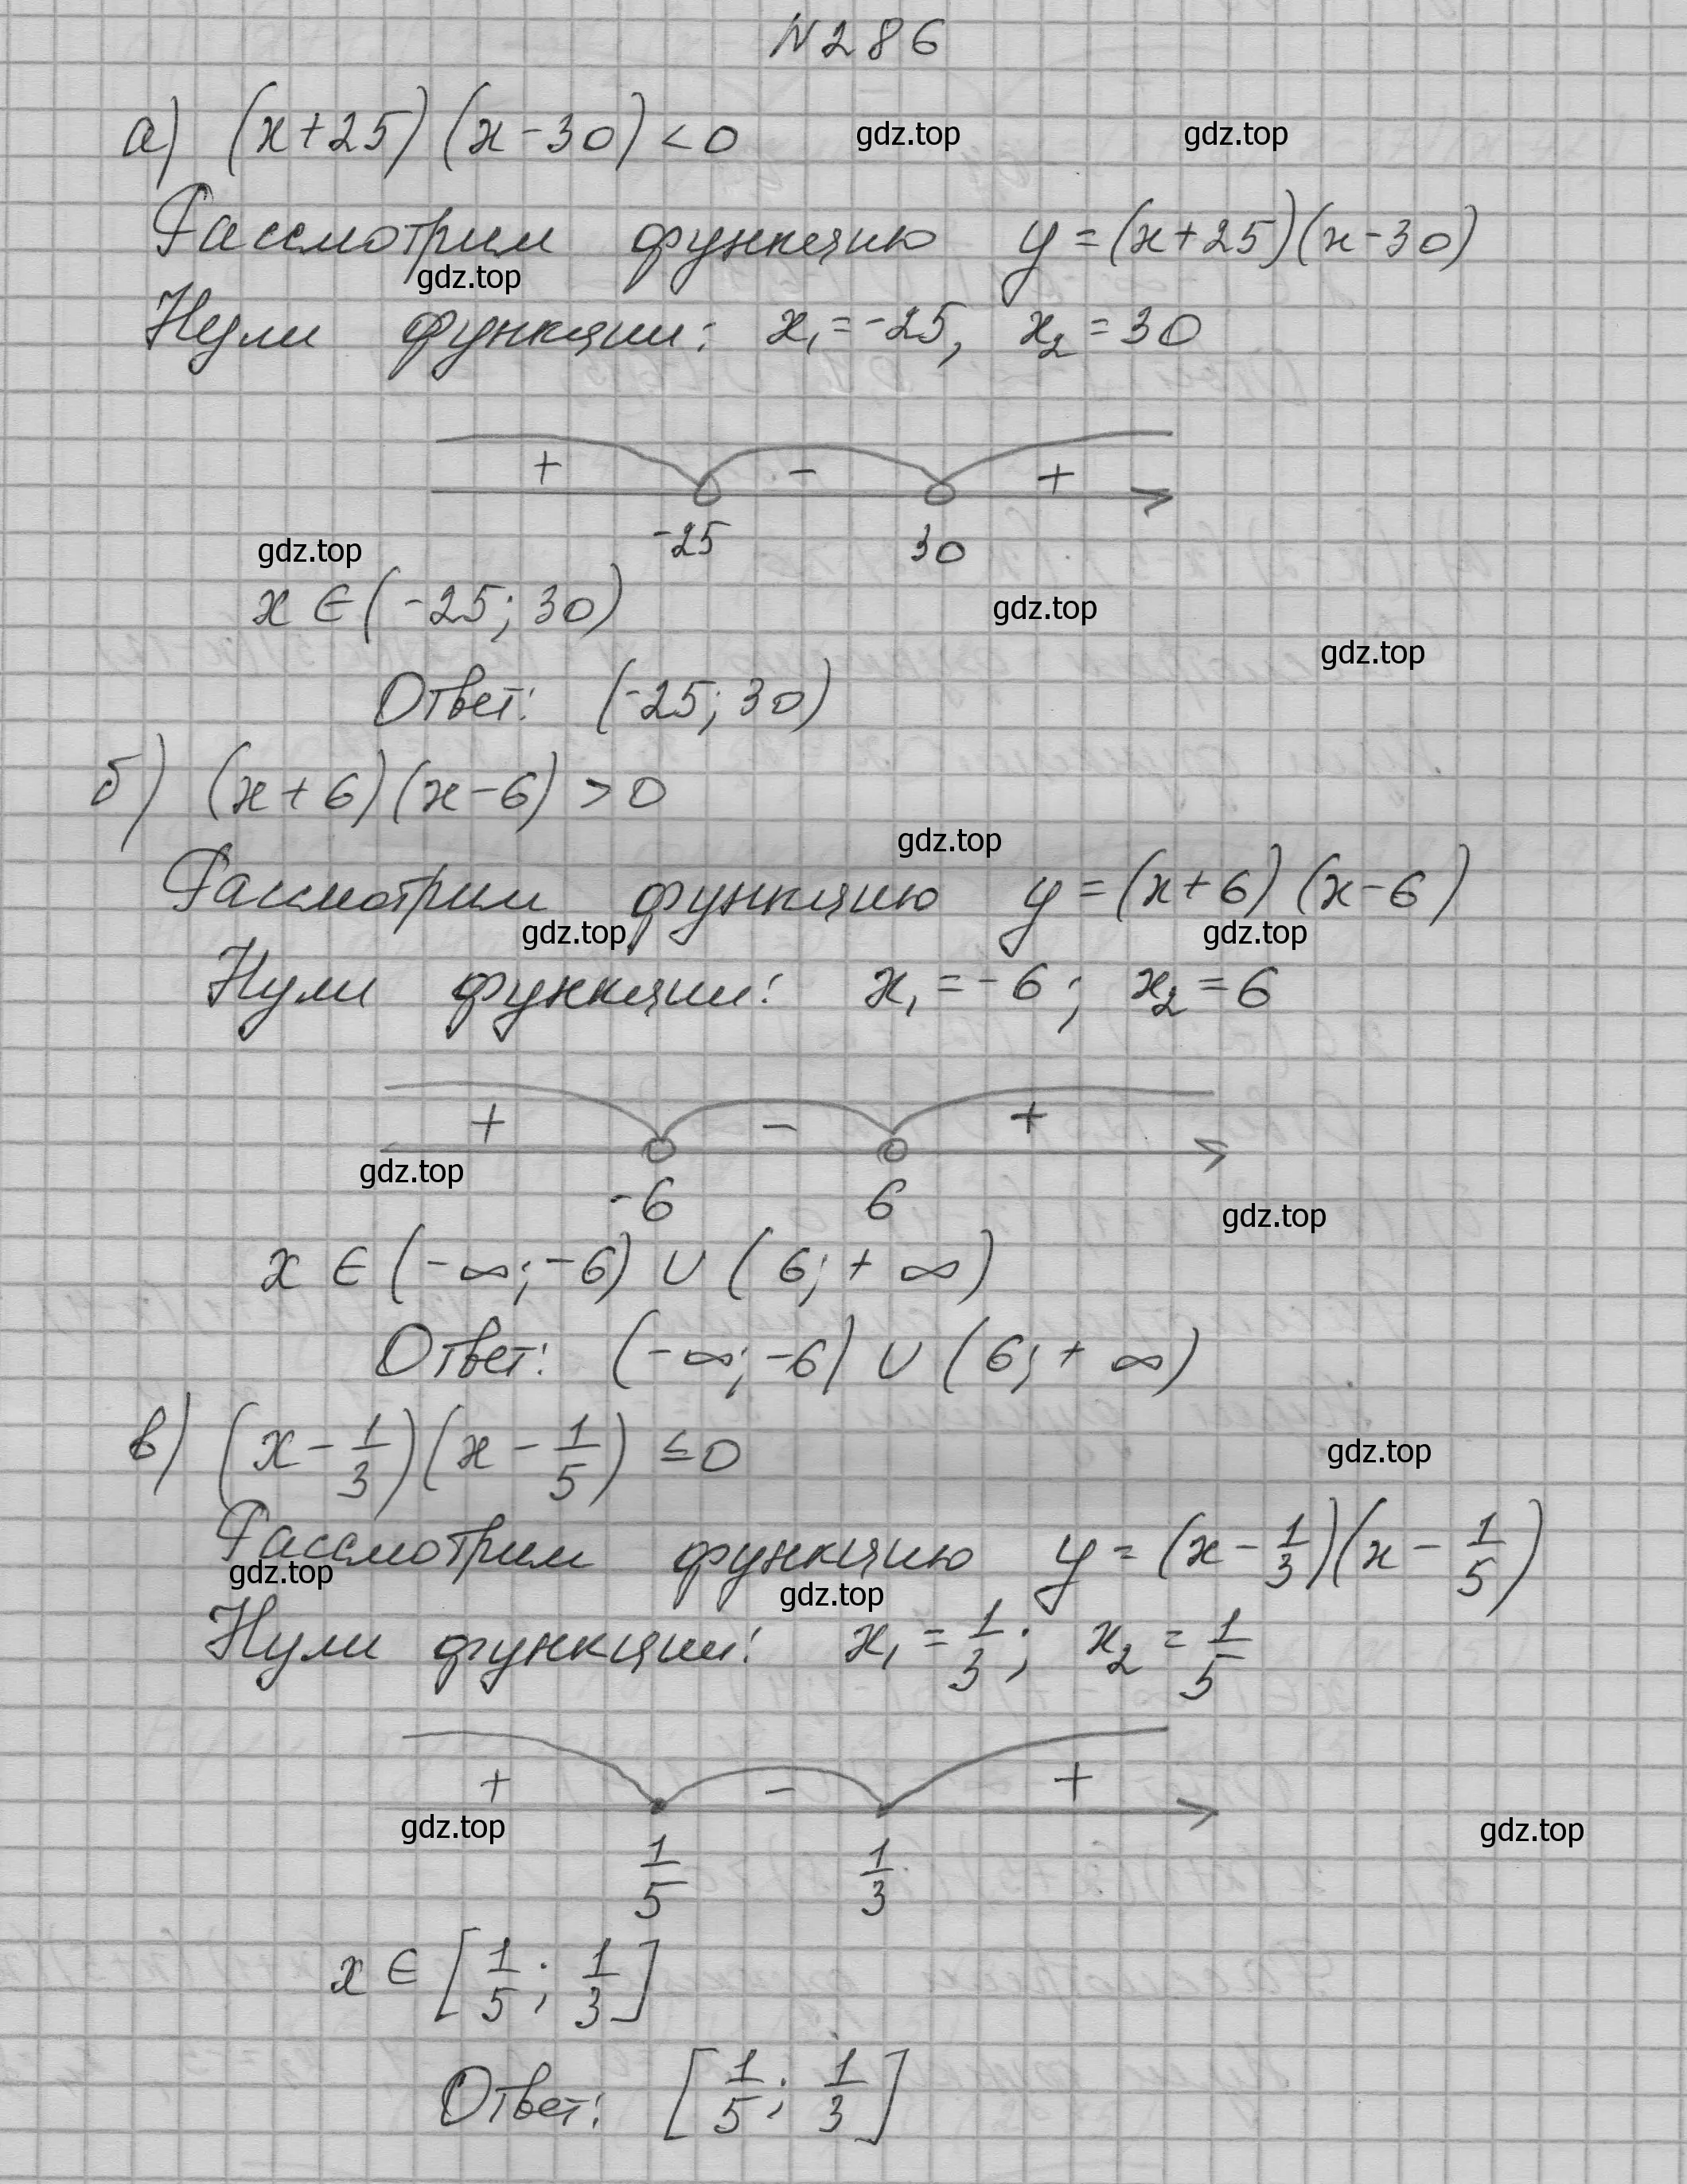 N286
а) (x+25)(x-30)<0
gdz.top gdz.top
Рассмотрим функцию y=(x+25)(x-30)
gdz.top
Нули функции: x₁=-25, x₂=30
+ - +
-25 30
gdz.top
x∈(-25; 30)
gdz.top
gdz.top
Ответ: (-25; 30)
б) (x+6)(x-6)>0
gdz.top
Рассмотрим функцию y=(x+6)(x-6)
gdz.top gdz.top
Нули функции: x₁=-6; x₂=6
+ - +
gdz.top
-6 6
gdz.top
x∈(-∞;-6)∪(6;+∞)
Ответ: (-∞;-6)∪(6;+∞)
в) (x-1/3)(x-1/5)≤0
gdz.top
Рассмотрим функцию y=(x-1/3)(x-1/5)
gdz.top gdz.top
Нули функции: x₁=1/3; x₂=1/5
+ - +
gdz.top gdz.top
1/5 1/3
x∈[1/5; 1/3]
Ответ: [1/5; 1/3]